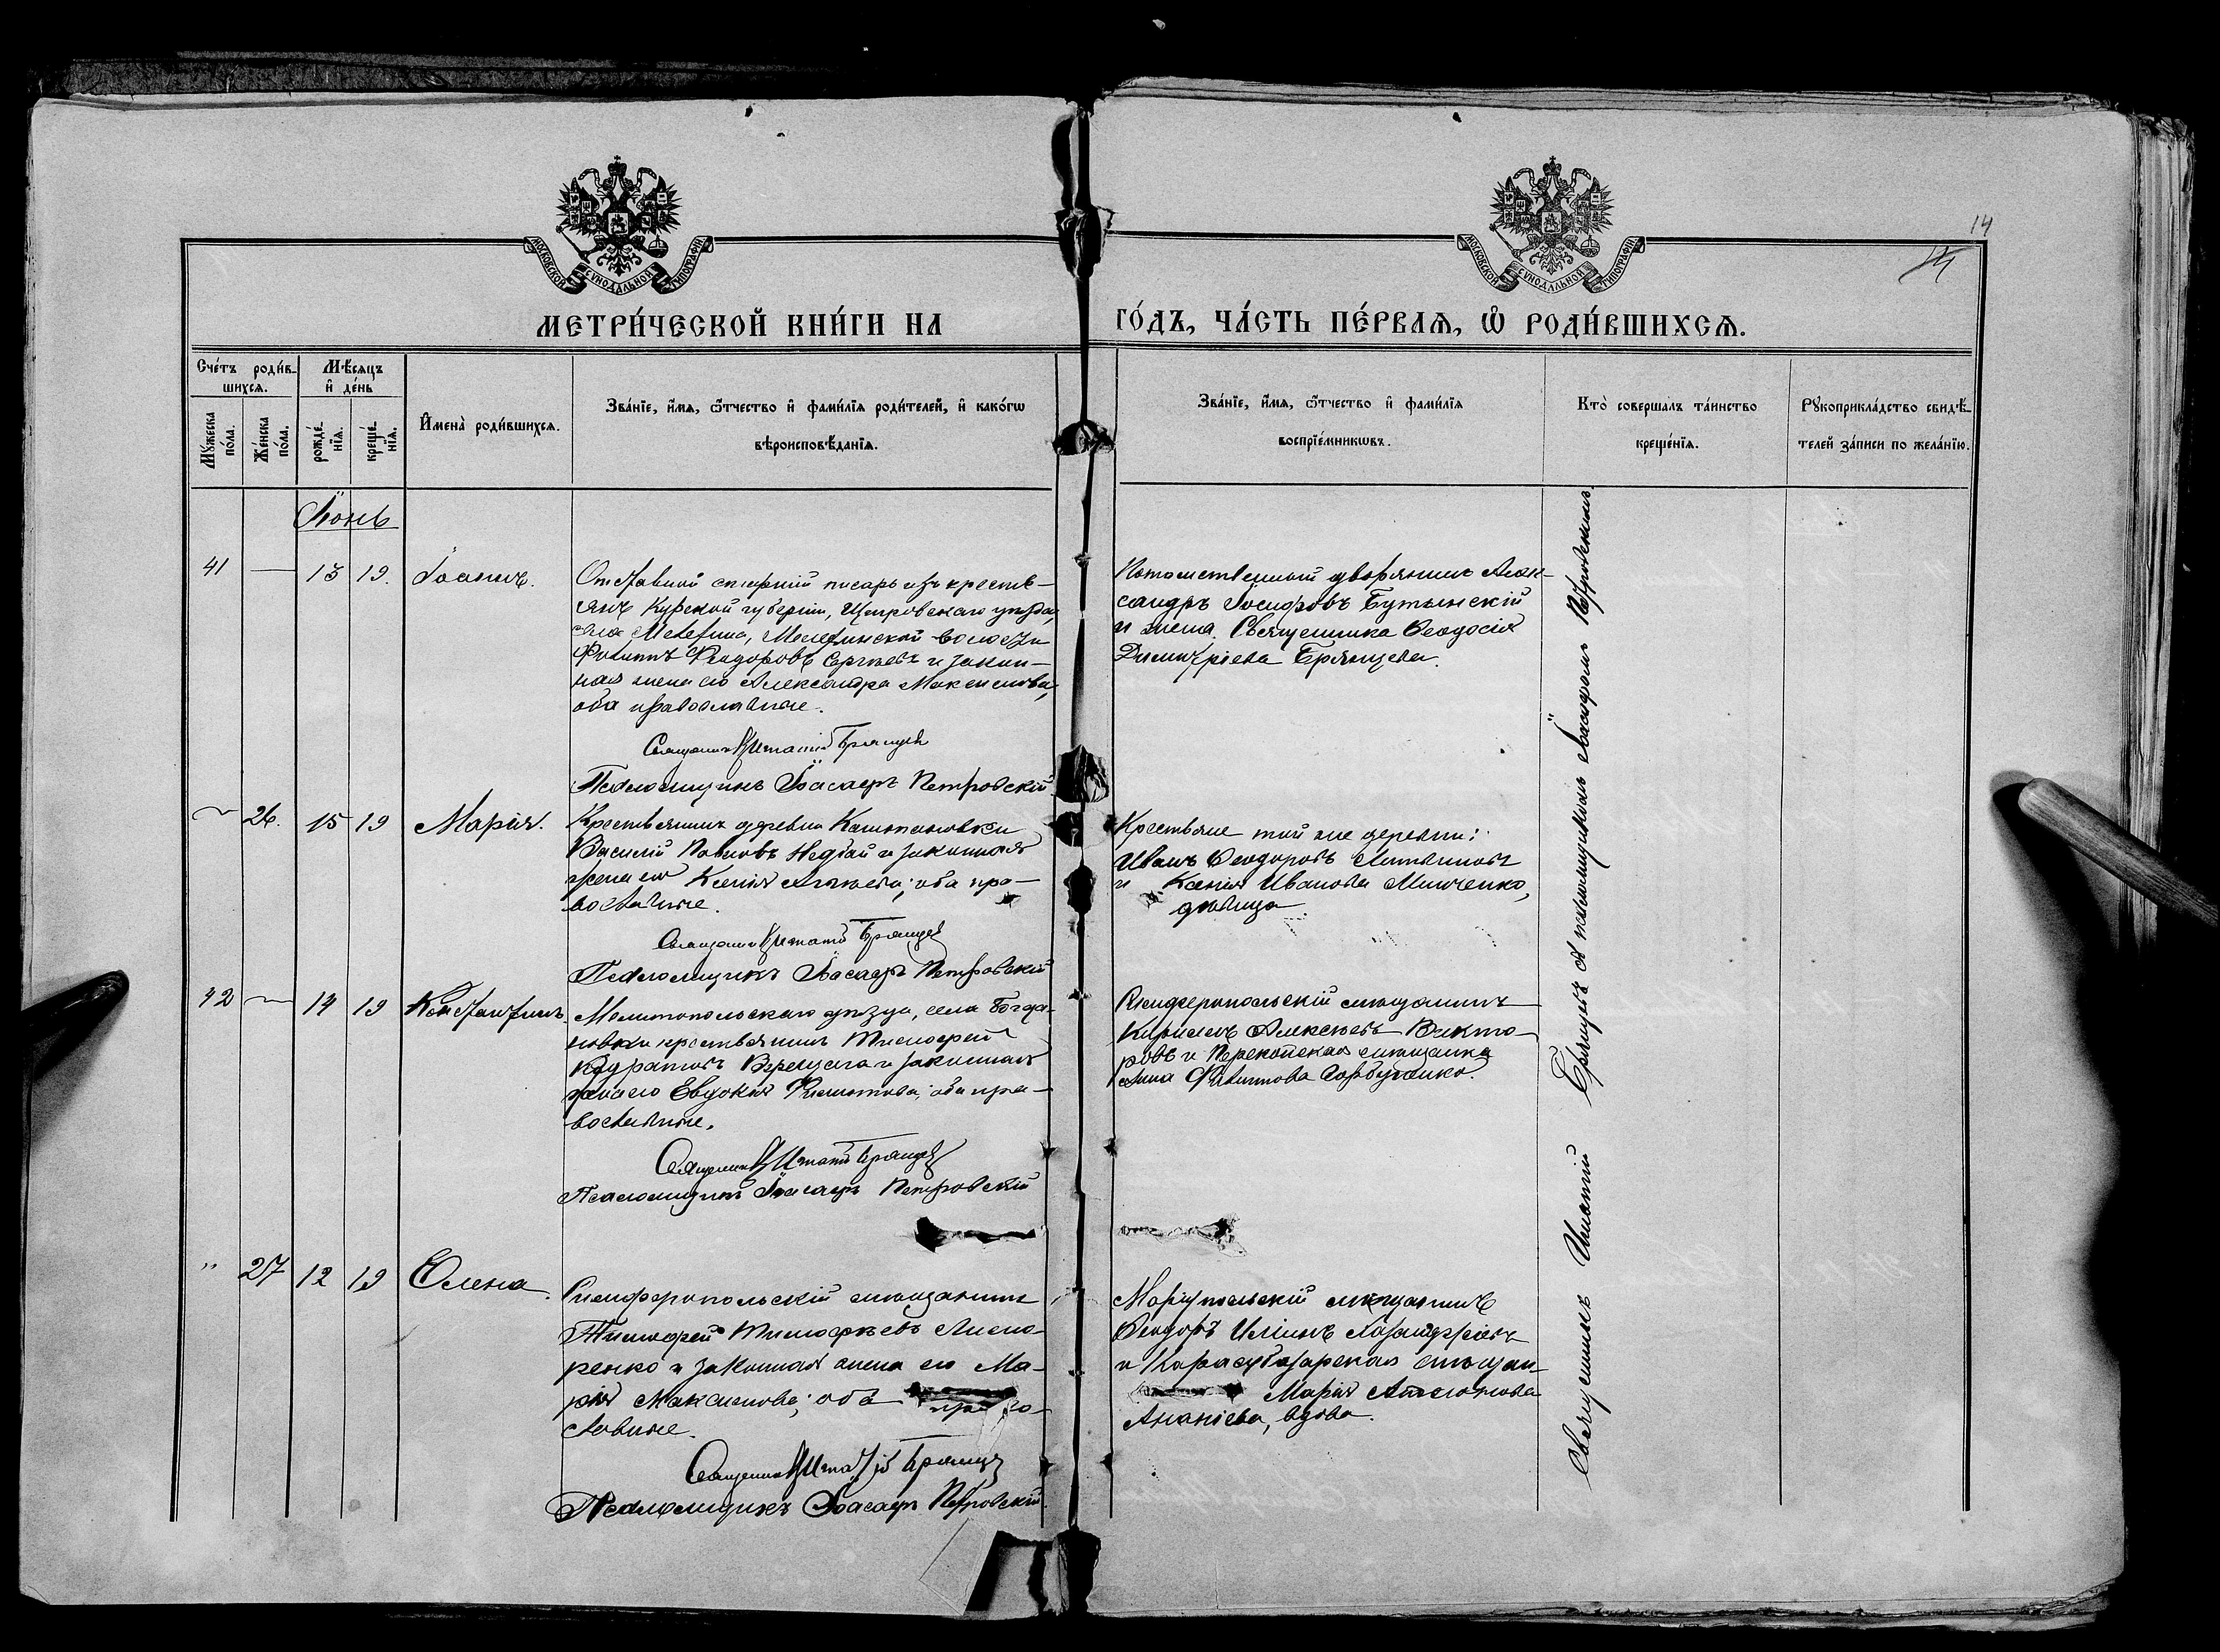 14
МОСКОВСКОЙ СѴНОДАЛЬНОЙ ТИПОГРАФІИ
МОСКОВСКОЙ СѴНОДАЛЬНОЙ ТИПОГРАФІИ
МЕТРИ́ЧЕСКОЙ КНИ́ГИ НА
ГО́ДЪ, ЧА́СТЬ ПЕ́РВАѦ, Ѡ РОДИ́ВШИХСѦ.
Сче́тъ роди́в-
шихсѧ.
Мꙋ́жеска
по́ла.
Же́нска
по́ла.
Мѣ́сѧцъ
и҆ де́нь
рожде́-
нїѧ.
креще́-
нїѧ.
И҆мена̀ роди́вшихсѧ.
Зва́нїе, и҆́мѧ, ѻ҆́тчество и҆ фами́лїѧ роди́телей, и҆ како́гѡ
вѣроисповѣ́данїѧ.
Зва́нїе, и҆́мѧ, ѻ҆́тчество и҆ фами́лїѧ
воспрїе́мникѡвъ.
Кто̀ соверша́лъ та́инство
креще́нїѧ.
Рꙋкоприкла́дство свидѣ́-
телей за́писи по жела́нїю.
Іюнь
41 — 13 19. Іоаннъ.
Отставной старшій писарь изъ кресть-
янъ Курской губерніи, Щигровскаго уѣзда,
села Мелехина, Мелехинской волости
Филиппъ Ѳеодоровъ Сергѣевъ и закон-
ная жена его Александра Максимова,
оба православные.
Священникъ Игнатій Брянцевъ
Псаломщикъ Іоасафъ Петровскій
Потомственный дворянинъ Алек-
сандръ Іосифовъ Бутынскій
и жена Священника Ѳеодосія
Димитріева Брянцева.
26. 15 19 Марія.
Крестьянинъ деревни Каштановки
Василій Павловъ Недбай и законная
жена его Ксенія ; оба пра-
вославные.
Священникъ Игнатій Брянцевъ
Псаломщикъ Іоасафъ Петровскій
Крестьяне той же деревни:
Иванъ Ѳеодоровъ Литвиновъ
и Ксенія Иванова Минченко,
дѣвица.
42 — 14 19 Константинъ.
Мелитопольскаго уѣзда, села Богда-
новки крестьянинъ Тимофей
Кодратовъ Верещага и законная
жена его Евдокія Филиппова; оба пра-
вославные.
Священникъ Игнатій Брянцевъ
Псаломщикъ Іоасафъ Петровскій
Симферопольскій мѣщанинъ
Кириллъ Алексѣевъ Викто-
ровъ и Перекопская мѣщанка
Анна Филиппова Горбученко.
" 27 12 19 Елена.
Симферопольскій мѣщанинъ
Тимофей Тимофѣевъ
ренко и законная жена его Ма-
рія Максимова; оба право-
славные.
Священникъ Игнатій Брянцевъ
Псаломщикъ Іоасафъ Петровскій.
Маріупольскій мѣщанинъ
Ѳеодоръ Ильинъ
и Карасубазарская мѣщан-
Марія Антонова
Ананіева, вдова.
Священникъ Игнатій Брянцевъ съ псаломщикомъ Іоасафомъ Петровскимъ.